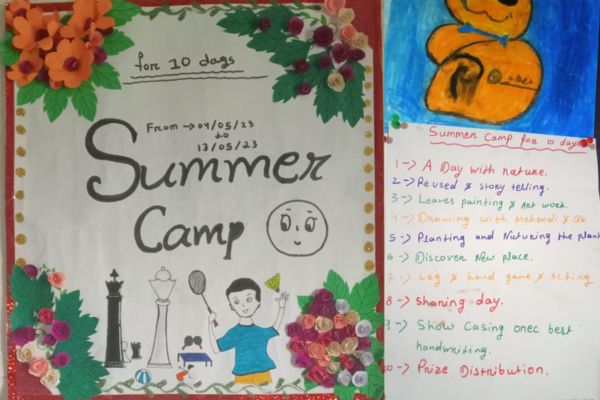 for 10 days
From → 04/05/23
to
13/05/23
Summer
Camp
Summer Camp for 10 days
1 -> A Day with nature.
2 -> Reused & story telling.
3 -> Leaves painting & Art work.
4 -> Drawing with Mehandi &
5 -> Planting and Nuturing the plant
6 -> Discover New place.
7 -> Leg & hand game & Acting
8 -> Sharing day.
9 -> Show Casing onec best
handwriting.
10 -> Prize Distribution.